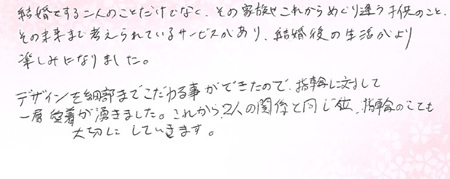 結婚をする二人のことだけでなく、その家族やこれからめぐり逢う子供のこと、
その未来まで考えられているサービスがあり、結婚後の生活がより
楽しみになりました。
デザインを細部までこだわる事ができたので、指輪に対して
一層愛着が湧きました。これから2人の関係と同じ位、指輪のことも
大切にしていきます。